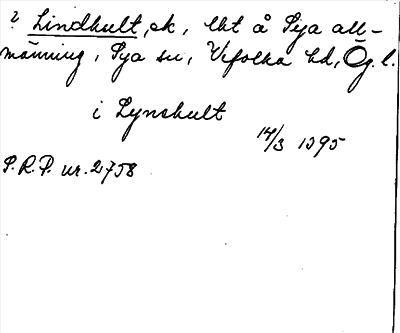 ? Lindhult, ck, lht å Sya all-
männing, Sya sn, Vifolka hd, Ög. l.
i Lynshult
14/3 1395
S.R.P. nr. 2758